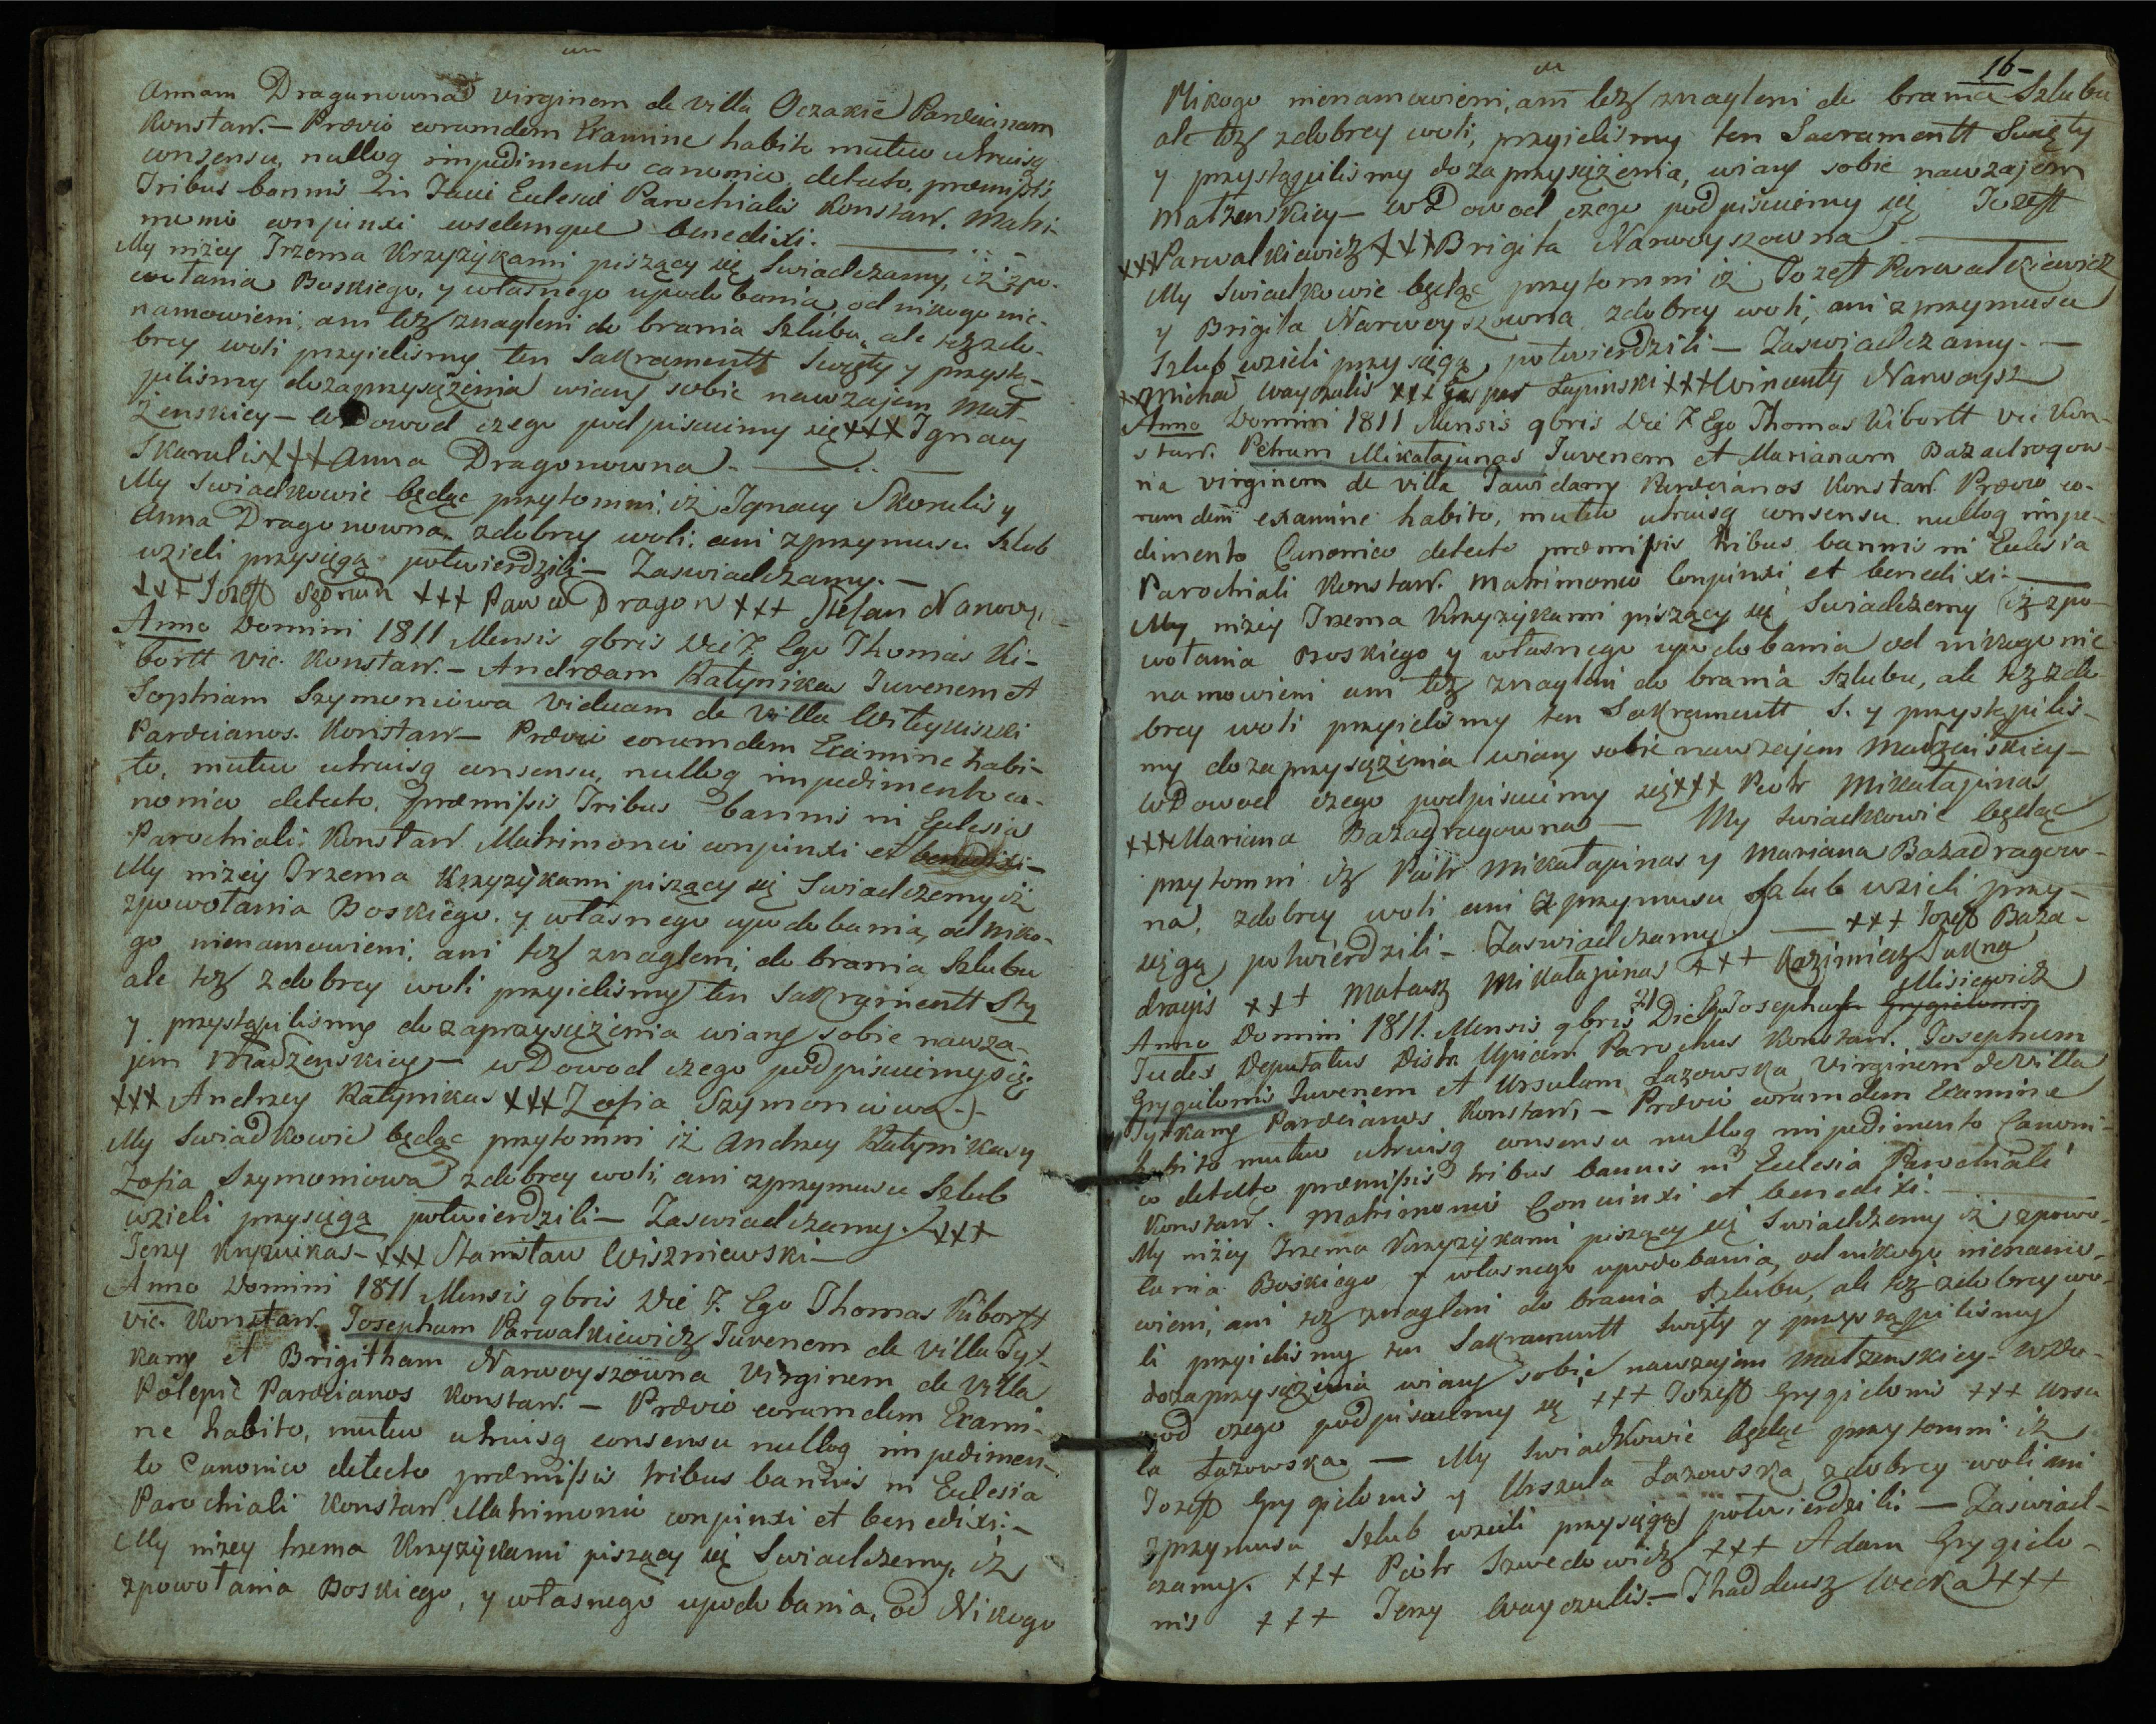 Annam Dragunowna virginem de villa Oczakie Parœcianam
Konstaw. — Prœvio eorumdem Examine habito mutuo utruisq
consensu, nulloq impedimento canonico detecto, prœmissis
Tribus bannis Eclesiœ Parochialis Konstaw. Matri-
monio conjunxi eosdemque benedixi. —
My niżey Trzema Krzyżykami piszący się Swiadczamy, iż zpo-
wołania Boskiego, y własnego upodobania od nikogo nie-
namowieni, ani też znagleni do brania Szlubu, ale też zdo-
brey woli przyieliśmy ten Sakramentt Swięty y przystą-
piliśmy dozaprzysiężenia wiary sobie nawzajem Mał-
żenskiey — w Dowod czego podpisuiemy się +++ Ignacy
Skarulis +++ Anna Dragonowna. —
My Swiadkowie będąc przytomni, iż Ignacy Skorulis y
Anna Dragonowna zdobrey woli, ani zprzymusu Szlub
wzieli przysięgą potwierdzili — Zaswiadczamy. —
+++ Jozeff +++ Paweł Dragon +++ Stefan Narwoy
Anno Domini 1811 Mensis 9bris Die 7. Ego Thomas Ki-
bortt Vic. Konstaw. — Andrœam Katynikas Juvenem et
Sophiam Szymoniowa Viduam de Villa Witkyniszki
Parœcianos. Konstaw — Prœvio eorumdem Examine habi-
to, mutuo utruisq consensu, nulloq impedimento ca-
nonico detecto, prœmissis Tribus bannis in Eclesia
Parochiali Konstaw Matrimonio conjunxi et benedixi —
My niżey Trzema Krzyżykami piszący się Swiadczemy iż
zpowołania Boskiego, y własnego upodobania, od niko-
go nienamowieni, ani też znagleni, do brania Szlubu
ale też zdobrey woli przyieliśmy ten Sakramentt Sty
y przystąpiliśmy do zaprzysiężenia wiary sobie nawza-
jem Madżenskiey — w Dowod czego podpisuiemy się
+++ Andrzey Katynikas +++ Zofia Szymoniowa. —
My Swiadkowie będąc przytomni iż Andrzey Katynikas y
Zofia Szymoniowa zdobrey woli, ani zprzymusu Szlub
wzieli przysięgą potwierdzili — Zaswiadczamy. +++
Jerzy Kryzuikas — +++ Stanisław Wiszniewski —
Anno Domini 1811 Mensis 9bris Die 7. Ego Thomas Kibortt
Vic. Konstaw. Josephum Parwalkiewicz Juvenem de Villa Tyt-
kany et Brigitham Narwoyszowna Virginem de Villa
Polepie Parœcianos Konstaw. — Prœvio eorumdem Exami-
ne habito, mutuo utruisq consensu nulloq impedimen-
to Canonico detecto prœmissis tribus bannis in Eclesia
Parochiali Konstaw Matrimonio conjunxi et benedixi. —
My niżey trzema Krzyżykami piszący się Swiadczemy, iż
zpowołania Boskiego, y własnego upodobania, od Nikogo
16 —
Nikogo nienamowieni, ani też znagleni do brania Szlubu
ale też zdobrey woli, przyieliśmy ten Sacramentt Swięty
y przystąpiliśmy do zaprzysiężenia, wiary sobie nawzajem
Małżenskiey — w Dowod czego podpisuiemy się Jozeff
+++ Parwalkiewicz +++ Brigita Narwoyszowna —
My Swiadkowie będąc przytomni iż Jozeff Parwalkiewicz
y Brigita Narwoyszowna zdobrey woli, ani zprzymusu
Szlub wzieli przysięgą potwierdzili — Zaswiadczamy. —
+++ Michał Wayczulis +++ Gasper Łapinski +++ Wincenty Narwoysz
Anno Domini 1811 Mensis 9bris Die 7 Ego Thomas Kibortt Vic Kon-
staw. Petrum Mikałajunas Juvenem et Marianam Bazadrogow-
na virginem de villa Jawidany Parœcianos Konstaw. Prœvio eo-
rumdem examine habito, mutuo utruisq consensu nulloq impe-
dimento Canonico detecto prœmissis tribus bannis in Eclesia
Parochiali Konstaw. Matrimonio Conjunxi et benedixi. —
My niżey Trzema Krzyżykami piszący się Swiadczemy iż zpo-
wołania Boskiego y własnego upodobania od nikogo nie
namowieni ani też znagleni do brania Szlubu, ale też zdo-
brey woli przyieliśmy ten Sakramentt S. y przystąpiliś-
my do zaprzysiężenia wiary sobie nawzajem Madżeńskiey —
w Dowod czego podpisuiemy się +++ Piotr Mikałajunas
+++ Mariana Bazadragowna — My Swiadkowie będąc
przytomni iż Piotr Mikałajunas y Mariana Bazadragow-
na, zdobrey woli ani zprzymusu Szlub wzieli przy-
sięgą potwierdzili — Zaswiadczamy. — +++ Jozeff Baza-
dragis +++ Mateusz Mikałajunas +++ Kazimierz Sukna
Anno Domini 1811. Mensis 9bris 21 Die Ego Josephus Grygielonis Misiewicz
Judex Deputatus Distr. Upicen. Parochus Konstaw. Josephum
Grygielonis Juvenem et Ursulam Łazowska Virginem de Villa
Tytkany Parœcianos Konstaw. — Prœvio eorumdem Examine
habito mutuo utruisq consensu nulloq impedimento Canoni-
co detecto prœmissis tribus bannis in Eclesia Parochiali
Konstaw. Matrimonio Conjunxi et benedixi. —
My niżey Trzema Krzyżykami piszący się Swiadczemy iż zpowo-
łania Boskiego y własnego upodobania, od nikogo nienamo-
wieni, ani też znagleni do brania Szlubu, ale też zdobrey wo-
li przyieliśmy ten Sakramentt Swięty y przystąpiliśmy
dozaprzysiężenia wiary sobie nawzajem Małżenskiey — w Do-
wod czego podpisuiemy się +++ Jozeff Grygielonis +++ Ursu
la Łazowska. — My Swiadkowie będąc przytomni iż
Jozeff Grygielonis y Urszula Łazowska zdobrey woli ani
zprzymusu Szlub wzieli przysięgą potwierdzili — Zaswiad-
czamy. +++ Piotr Szwedowicz +++ Adam Grygielo-
nis +++ Jerzy Wayczulis. — Thaddeusz Wecka +++